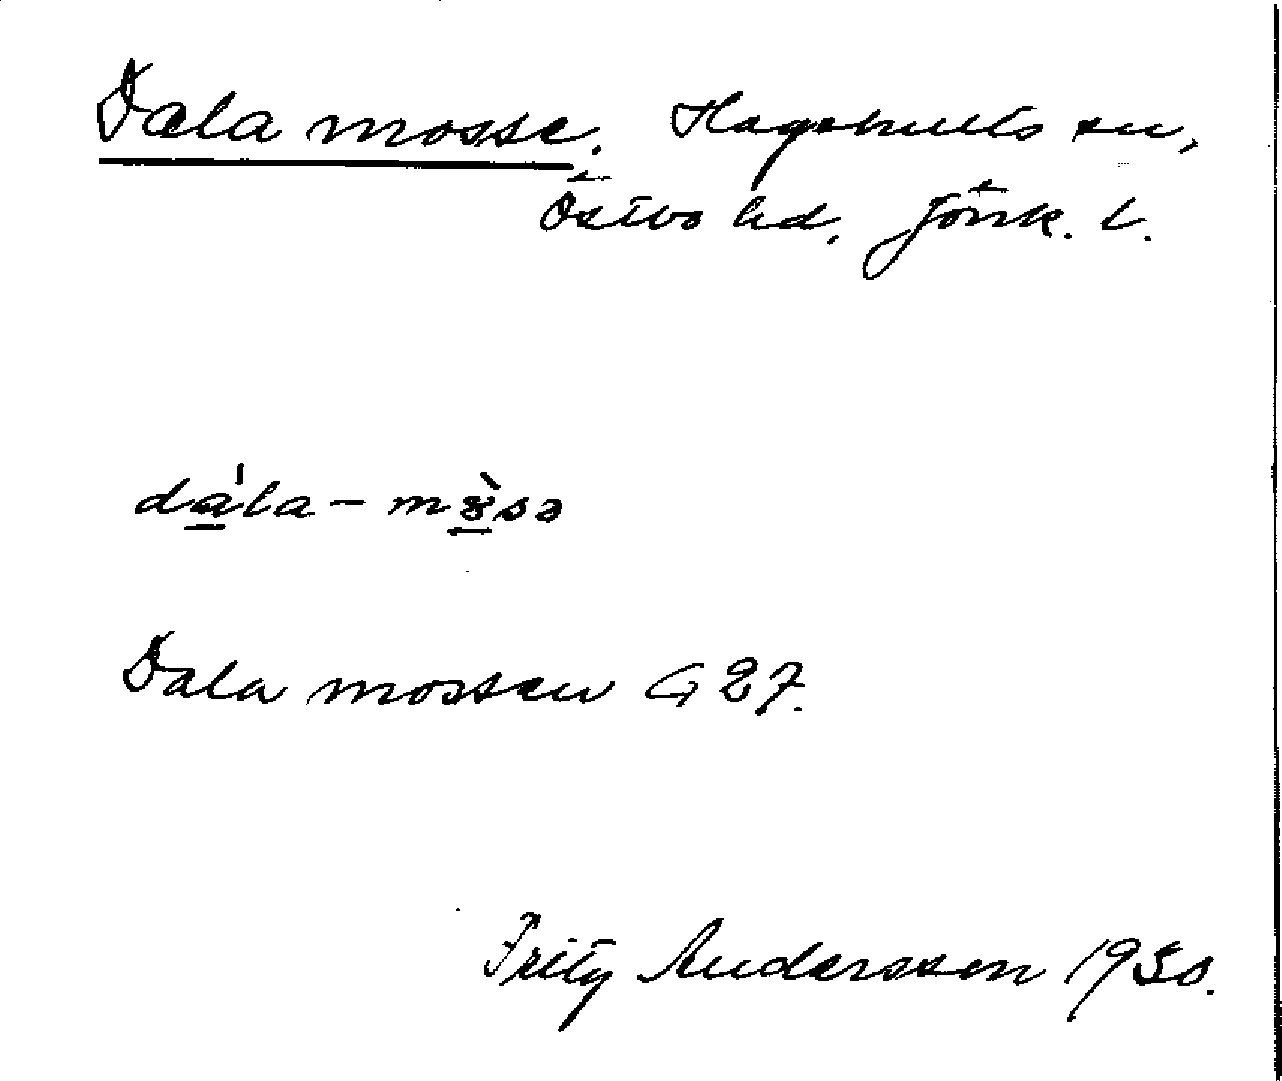 Dala mosse. Hagshults sn,
Östbo hd, Jönk. l.
dála - mòsə
Dala mossen G 27.
Fritz Andersson 1930.